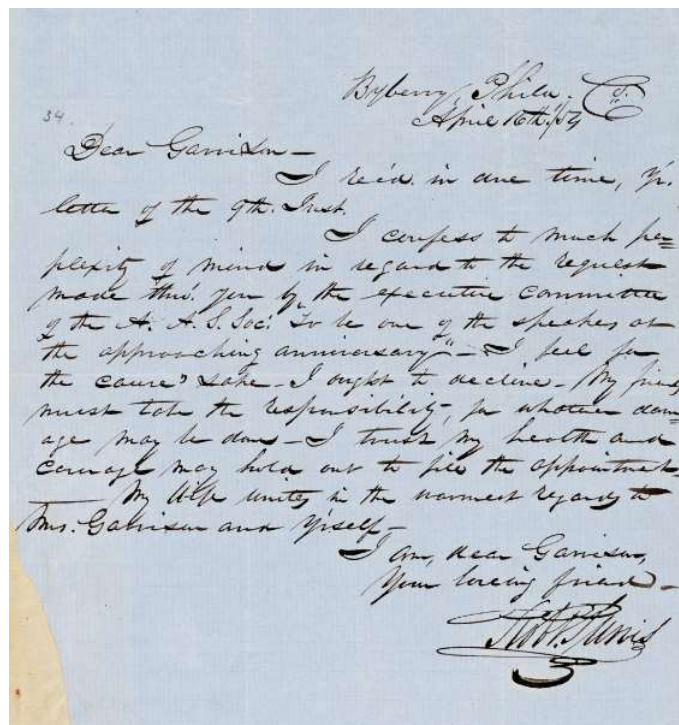 Byberry, Phila. Co.
April 16th /54
34.
Dear Garrison—
I rec'd. in due time, Yr.
letter of the 9th. Inst.
I confess to much per=
plexity of mind in regard to the request
made thro'. you by the executive committee
of the A. A. S. Soc'. "to be one of the speakers at
the approaching anniversary"— I feel for
the cause's sake— I ought to decline— My friends
must take the responsibility, for whatever dam=
age may be done— I trust my health and
courage may hold out to fill the appointment—
My Wife unites in the warmest regards to
Mrs. Garrison and Y'rself—
I am, dear Garrison,
Your loving friend—
Rob't. Purvis